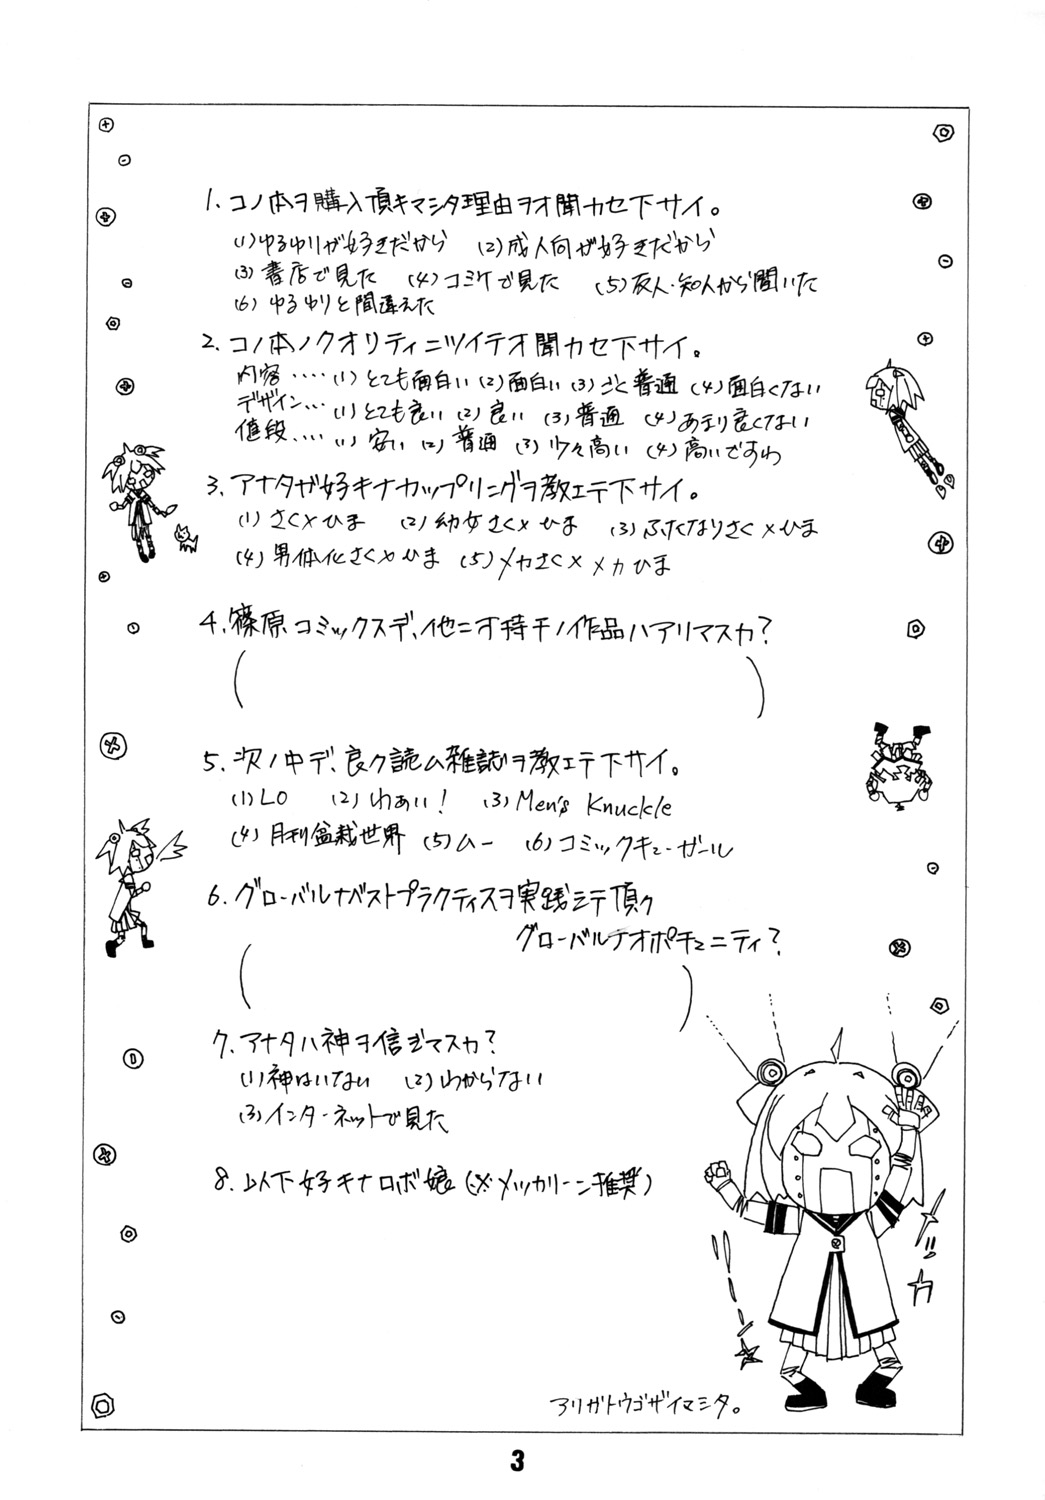 1. コノ本ヲ購入頂キマシタ理由ヲオ聞カセ下サイ。
(1)ゆるゆりが好きだから (2)成人向が好きだから
(3)書店で見た (4)コミケで見た (5)友人・知人から聞いた
(6)ゆるゆりと間違えた
2. コノ本ノクオリティニツイテオ聞カセ下サイ。
内容‥‥(1)とても面白い (2)面白い (3)ごく普通 (4)面白くない
デザイン…(1)とても良い (2)良い (3)普通 (4)あまり良くない
値段‥‥(1)安い (2)普通 (3)少々高い (4)高いですわ
3. アナタガ好キナカップリングヲ教エテ下サイ。
(1)さく×ひま (2)幼女さく×ひま (3)ふたなりさく×ひま
(4)男体化さく×ひま (5)メカさく×メカひま
4. 篠原コミックスデ、他ニオ持チノ作品ハアリマスカ?
( )
5. 次ノ中デ、良ク読ム雑誌ヲ教エテ下サイ。
(1)LO (2)わぁい! (3)Men's Knuckle
(4)月刊盆栽世界 (5)ムー (6)コミックキューガール
6. グローバルナベストプラクティスヲ実践シテ頂ク
グローバルナオポチュニティ?
( )
7. アナタハ神ヲ信ジマスカ?
(1)神はいない (2)わからない
(3)インターネットで見た
8. 以下好キナロボ娘(※メッカリーン推奨)
ガッカ
アリガトウゴザイマシタ。
3